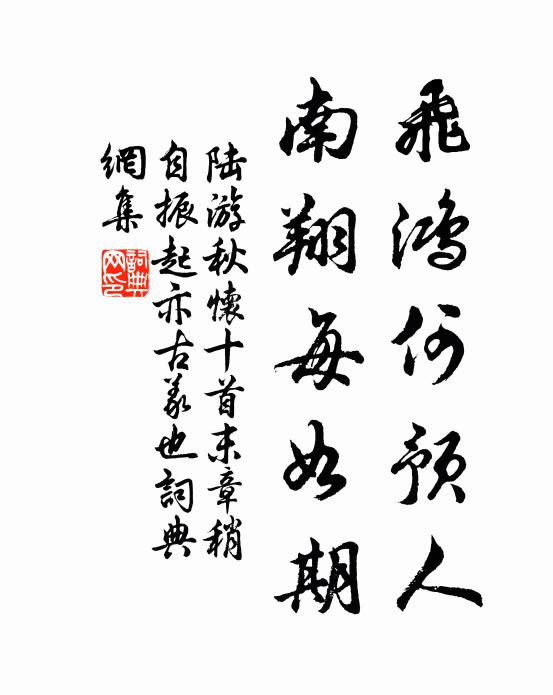 飛鴻何預人
南翔每如期
陸游秋懷十首末章稍
自振起亦古義也詞典
網集
詞典
网印